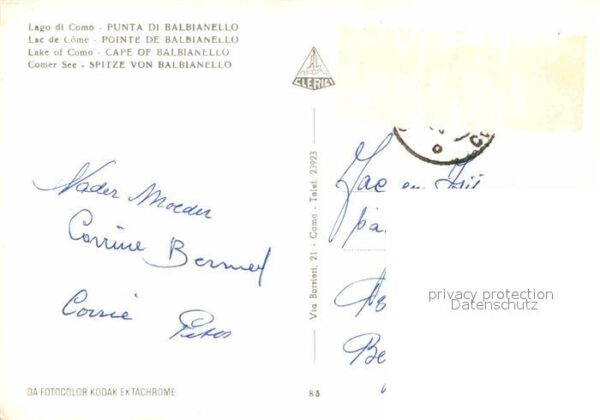 Lago di Como - PUNTA DI BALBIANELLO
Lac de Côme - POINTE DE BALBIANELLO
Lake of Como - CAPE OF BALBIANELLO
Comer See - SPITZE VON BALBIANELLO
CLERICI
Vader Moeder
Corrine
Corrie
Via Borsieri, 21 - Como - Telef. 23923
Jac en
privacy protection
Datenschutz
DA FOTOCOLOR KODAK EKTACHROME
85